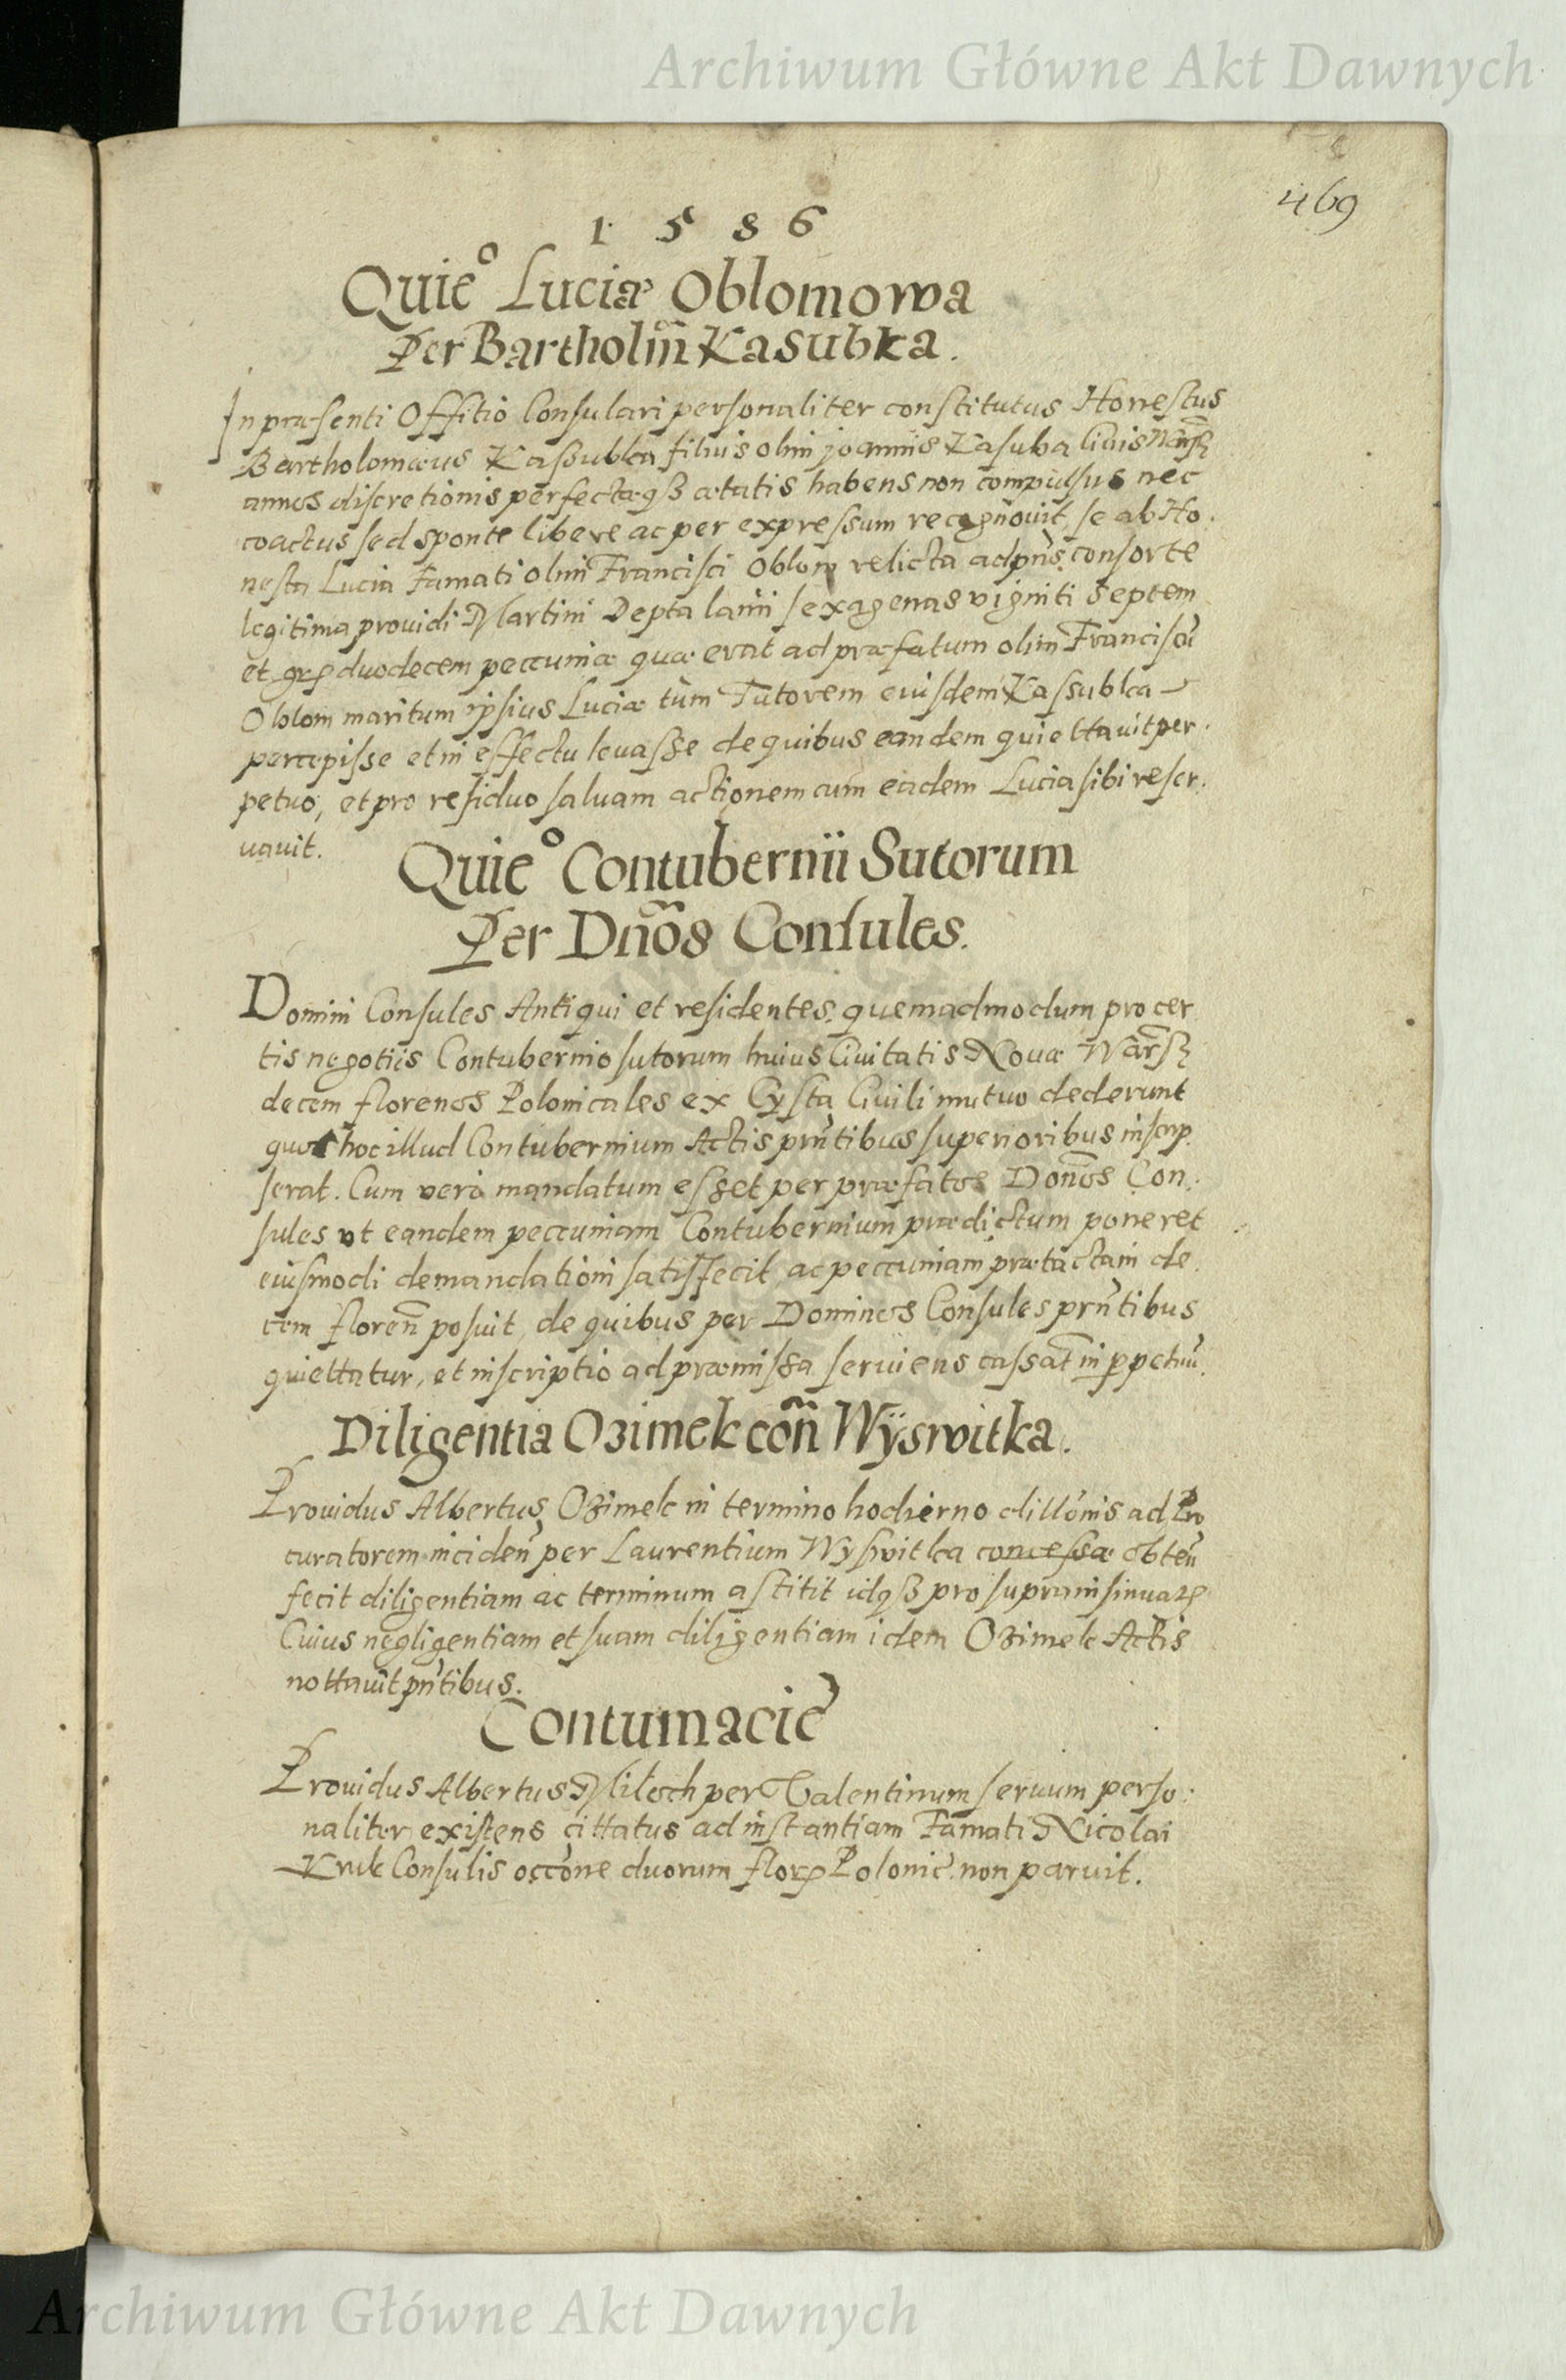 Archiwum Główne Akt Dawnych
469
1 5 8 6
Quieō Luciæ Oblomowa
Per Bartholm̃ Kasubka.
In præsenti Offitio Consulari personaliter constitutus Honestus
Bartholomæus Kassubka filius olim joannis Kasuba Ciuis Warsz
annos discretionis perfectæqз ætatis habens non compulsus nec
coactus sed sponte libere ac per expressum recognouit, se ab Ho
nesta Lucia Famati olim Francisci Oblom relicta ad pñs consorte
legitima prouidi Martini Depta lanii sexagenas viginti septem
et grꝝ duodecem peccuniæ quæ erat ad præfatum olim Franciscũ
Oblom maritum ipsius Luciæ tum Tutorem eiusdem Kassubka
percepisse et in effectu leuasse de quibus eandem quiettauit per
petuo, et pro residuo saluam actionem cum eadem Lucia sibi reser
uauit.
Quieō Contubernii Sutorum
Per Dños Consules.
Domini Consules Antiqui et residentes, quemadmodum pro cer
tis negotiis Contubernio sutorum huius Ciuitatis Nouæ Warsz
decem florenos Polonicales ex Cysta Ciuili mutuo dederunt
quos hoc illud Contubernium Actis prñtibus superioribus inscrip
serat. Cum vero mandatum esset per præfatos Domños Con
sules vt eandem peccuniam Contubernium prædictum poneret
eiusmodi demandationi satisfecit, ac peccuniam prætactam de
cem floreñ posuit, de quibus per Dominos Consules prñtibus
quiettatur, et inscriptio ad præmissa seruiens cassat̃ in ꝑpetuũ.
Diligentia Ozimek coñ Wÿswitka.
Prouidus Albertus Ozimek in termino hodierno dillõnis ad Pro
curatorem inciden̄ per Laurentium Wyswitka concessæ obteñ
fecit diligentiam ac terminum astitit idqз pro supra insinuaꝝ
Cuius negligentiam et suam diligentiam idem Ozimek Actis
nottauit pñtibus.
Contumacie
Prouidus Albertus Miloch per Valentinum seruum perso
naliter existens cittatus ad instantiam Famati Nicolai
Kruk Consulis occõne duorum florꝝ Polonic. non paruit.
Archiwum Główne Akt Dawnych